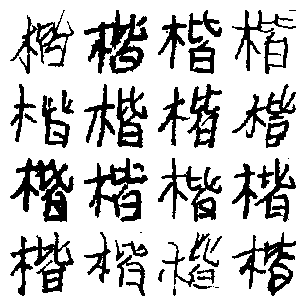 楷楷楷楷
楷楷楷楷
楷楷楷楷
楷楷楷楷